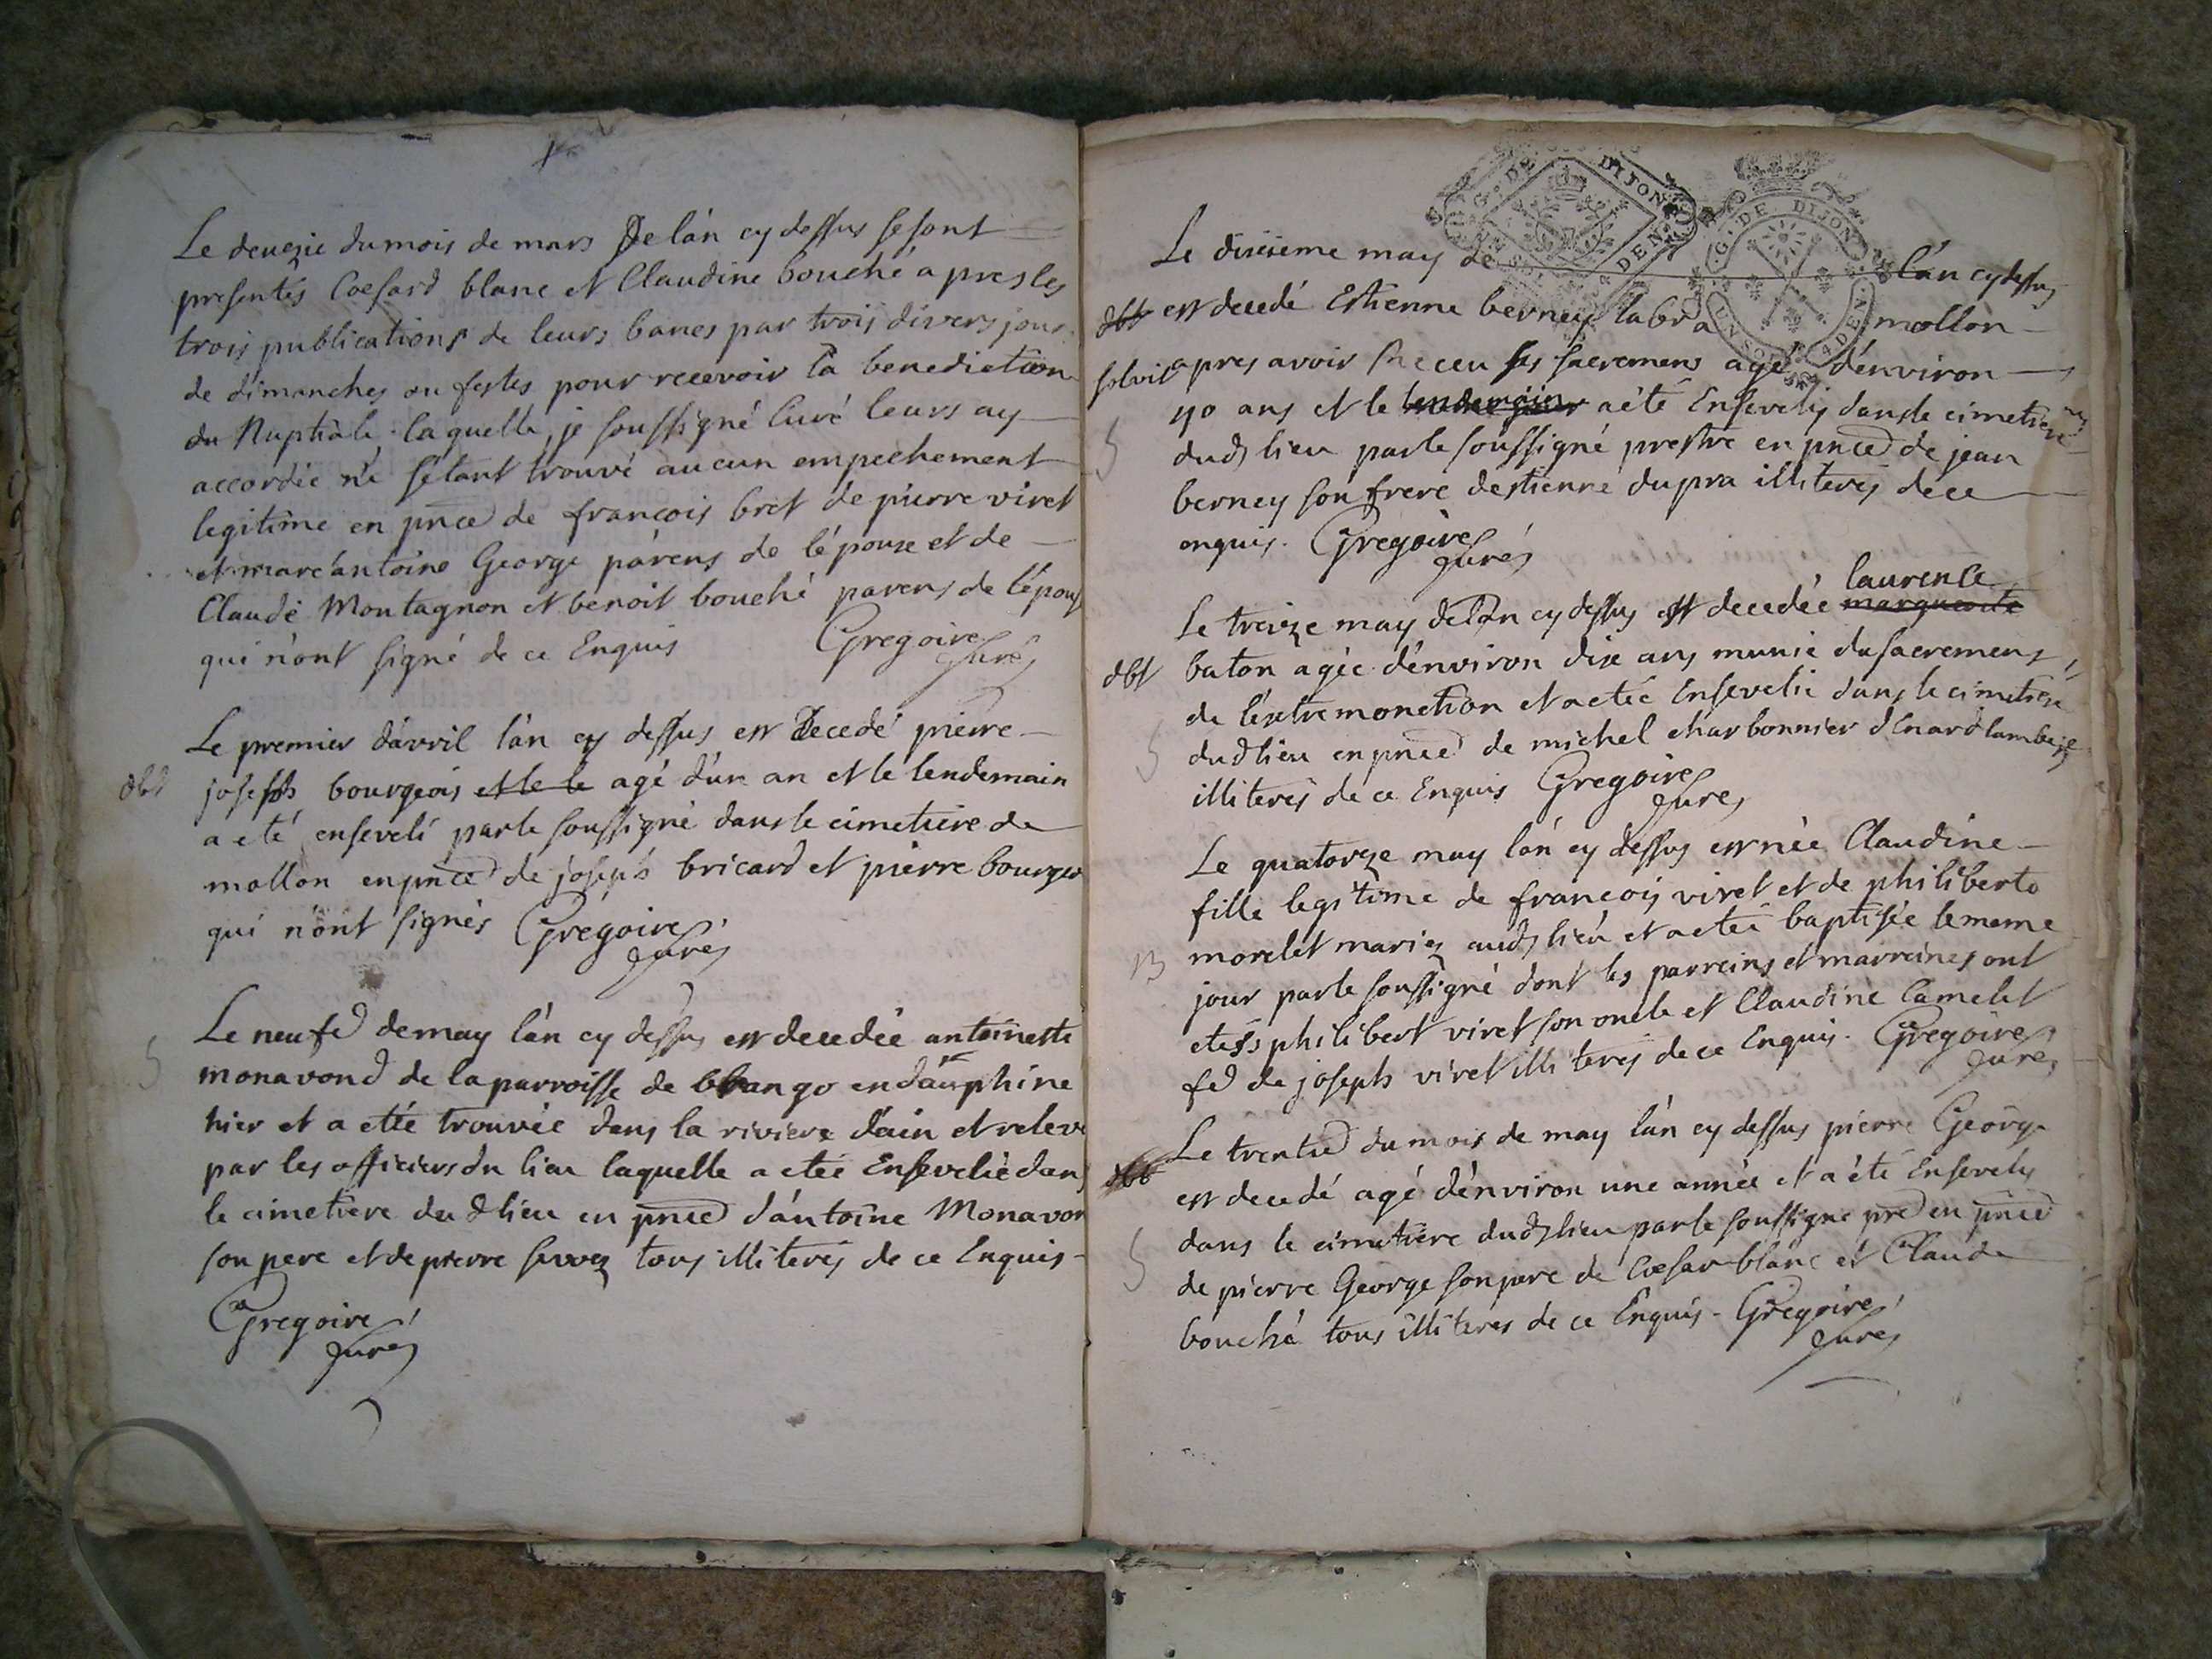 Le deuzie du mois de mars De lán cy dessus se sont
presentés Coesard blanc et Claudine bouché apres les
trois publications de leurs bancs par trois divers jour
de dimanches ou festes pour recevoir la benediction
du Nuptiale laquelle, je soussigné Curé leurs ay
accordée ne sétant trouvé aucun empechement
legitime en pnce de francois bret de pierre viret
et marc antoine George parens de lépoux et de
Claude Montagnon et benoit bouché parens de lépous
qui nónt signé de ce Enquis Gregoire
Curé
Le premier dávril lán cy dessus est Decedé pierre
dbt joseph bourgeois et le le agé dún an et le lendemain
a eté enseveli par le soussigné dans le cimetiere de
mollon en pnce de joseph bricard et pierre bourgeo
qui nónt signés Gregoire
Curé
Le neufe de may lán cy dessus est decedée antoinette
monavond de la parroisse de blango en dauphine
hier et a etée trouvée dans la riviere dáin et releve
par les officiers du lieu laquelle a etée Ensevelie dans
le cimetiere dud lieu en pnce dántoine Monavon
son pere et de pierre servoz tous illiterés de ce Enquis
Gregoire
Curé
G. DE DIJON
G. DE DIJON
Le dixieme may de lán cy dessus
dbt est decedé Estienne berney labr a mollon
solvit apres avoir receu les sacremens agé dénviron
40 ans et le lendemain a été Ensevely dans le cimetiere
dud lieu par le soussigné prestre en pnce de jean
berney son frere destienne dupra illiterés de ce
enquis. Gregoire
Curé
laurence
Le treize may de lán cy dessus est decedée marguerite
dbt baton agée dénviron dix ans munie du sacremens
de léxtremonction et a etée Ensevelie dans le cimetiere
dud lieu en pnce de michel charbonnier dEnard lambert
illiterés de ce Enquis Gregoire
Curé
Le quatorze may lán cy dessus est née Claudine
fille legitime de francois viret et de philiberte
morelet mariez aud lieu et a etée baptisée le meme
jour par le soussigné dont les parreins et marreines ont
etés philibert viret son oncle et Claudine Camelet
fe de joseph viret illiterés de ce Enquis. Gregoire
Curé
Le trentie du mois de may lán cy dessus pierre George
dbt est decedé agé dénviron une année et a été Ensevely
dans le cimetiere dud lieu par le soussigné pre en pnce
de pierre George son pere de Coesar blanc et Claude
bouché tous illiterés de ce Enquis - Gregoire
Curé